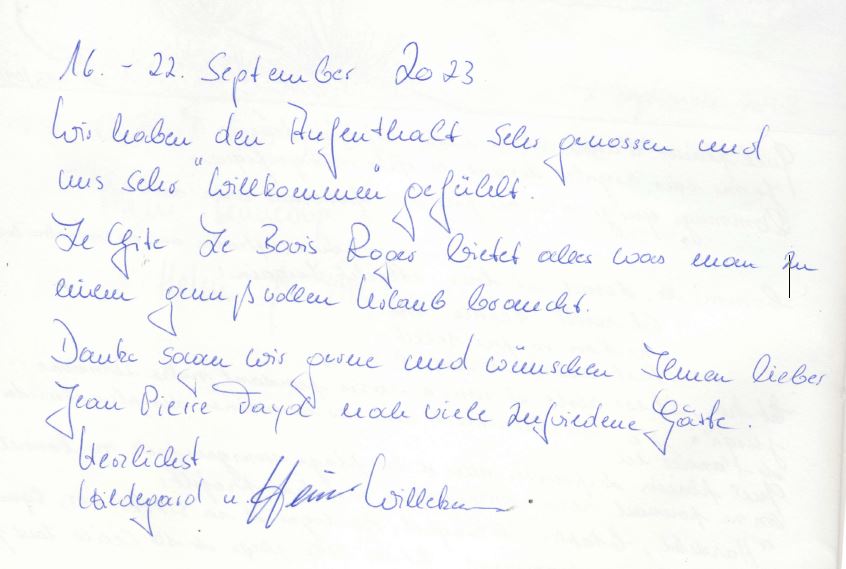 16. - 22. September 2023
Wir haben den Aufenthalt sehr genossen und
uns sehr "Willkommen" gefühlt.
Le Gite Le Bois Roger bietet alles was man zu
einem genußvollen Urlaub braucht.
Danke sagen wir gerne und wünschen Ihnen lieber
Jean Pierre Dayd noch viele zufriedene Gäste.
Herzlichst
Hildegard u. Heinz